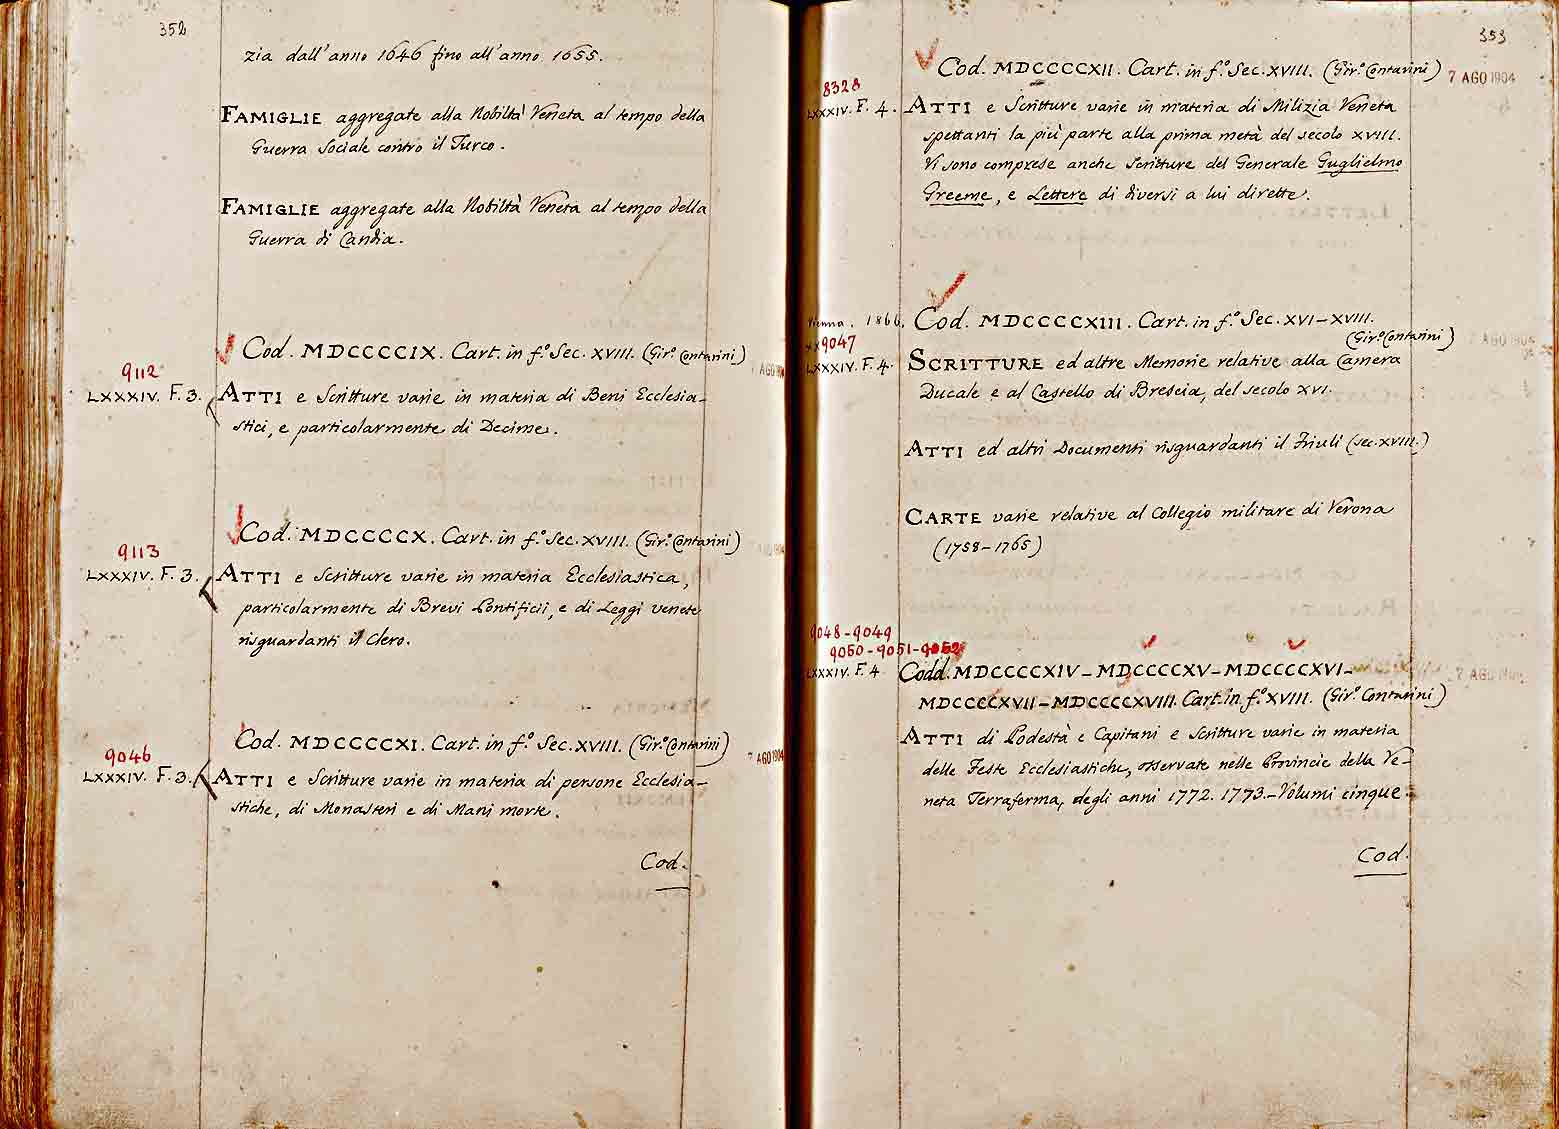 352
zia dall'anno 1646 fino all'anno 1655.
FAMIGLIE aggregate alla Nobiltà Veneta al tempo della
Guerra Sociale contro il Turco.
FAMIGLIE aggregate alla Nobiltà Veneta al tempo della
Guerra di Candia.
Cod. MDCCCCIX. Cart. in f.º Sec. XVIII. (Gir.º Contarini)
9112
7 AGO 1904
LXXXIV. F. 3.
ATTI e Scritture varie in materia di Beni Ecclesia-
stici, e particolarmente di Decime.
Cod. MDCCCCX. Cart. in f.º Sec. XVIII. (Gir.º Contarini)
9113
LXXXIV. F. 3.
ATTI e Scritture varie in materia Ecclesiastica,
particolarmente di Brevi Pontificii, e di Leggi venete
risguardanti il Clero.
Cod. MDCCCCXI. Cart. in f.º Sec. XVIII. (Gir.º Contarini)
9046
7 AGO 1904
LXXXIV. F. 3.
ATTI e Scritture varie in materia di persone Ecclesia-
stiche, di Monasteri e di Mani morte.
Cod.
353
Cod. MDCCCCXII. Cart. in f.º Sec. XVIII. (Gir.º Contarini)
7 AGO 1904
8328
LXXXIV. F. 4.
ATTI e Scritture varie in materia di Milizia Veneta
spettanti la più parte alla prima metà del secolo XVIII.
Vi sono comprese anche Scritture del Generale Guglielmo
Greeme, e Lettere di diversi a lui dirette.
Vienna. 1866.
Cod. MDCCCCXIII. Cart. in f.º Sec. XVI-XVIII.
(Gir.º Contarini)
7 AGO 1904
9047
LXXXIV. F. 4.
SCRITTURE ed altre Memorie relative alla Camera
Ducale e al Castello di Brescia, del secolo XVI.
ATTI ed altri Documenti risguardanti il Friuli (sec. XVIII.)
CARTE varie relative al Collegio militare di Verona
(1758-1765)
9048-9049
9050-9051-9052
LXXXIV. F. 4
Codd. MDCCCCXIV-MDCCCCXV-MDCCCCXVI-
7 AGO
MDCCCCXVII-MDCCCCXVIII. Cart. in f.º XVIII. (Gir.º Contarini)
ATTI di Podestà e Capitani e Scritture varie in materia
delle Feste Ecclesiastiche, osservate nelle Provincie della Ve-
neta Terraferma, degli anni 1772. 1773.-Volumi cinque.
Cod.